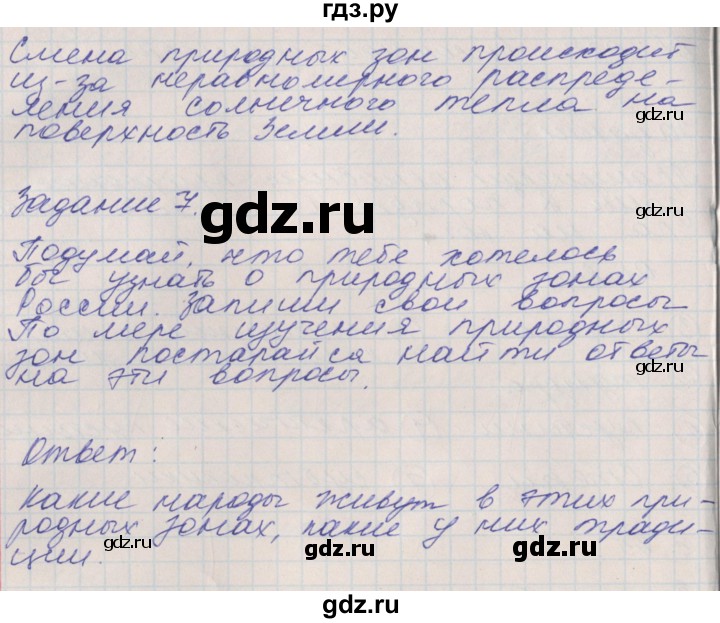 гдз.ру
Смена природных зон происходит
из-за неравномерного распреде-
ления солнечного тепла на
gdz.ru
поверхность Земли.
gdz.ru
Задание 7.
gdz.ru
gdz.ru
Подумай, что тебе хотелось
бы узнать о природных зонах
России. Запиши свои вопросы
gdz.ru
По мере изучения природных
зон постарайся найти ответы
на эти вопросы.
gdz.ru
Ответ:
Какие народы живут в этих при-
родных зонах, какие у них тради-
ции.
gdz.ru
gdz.ru
gdz.ru